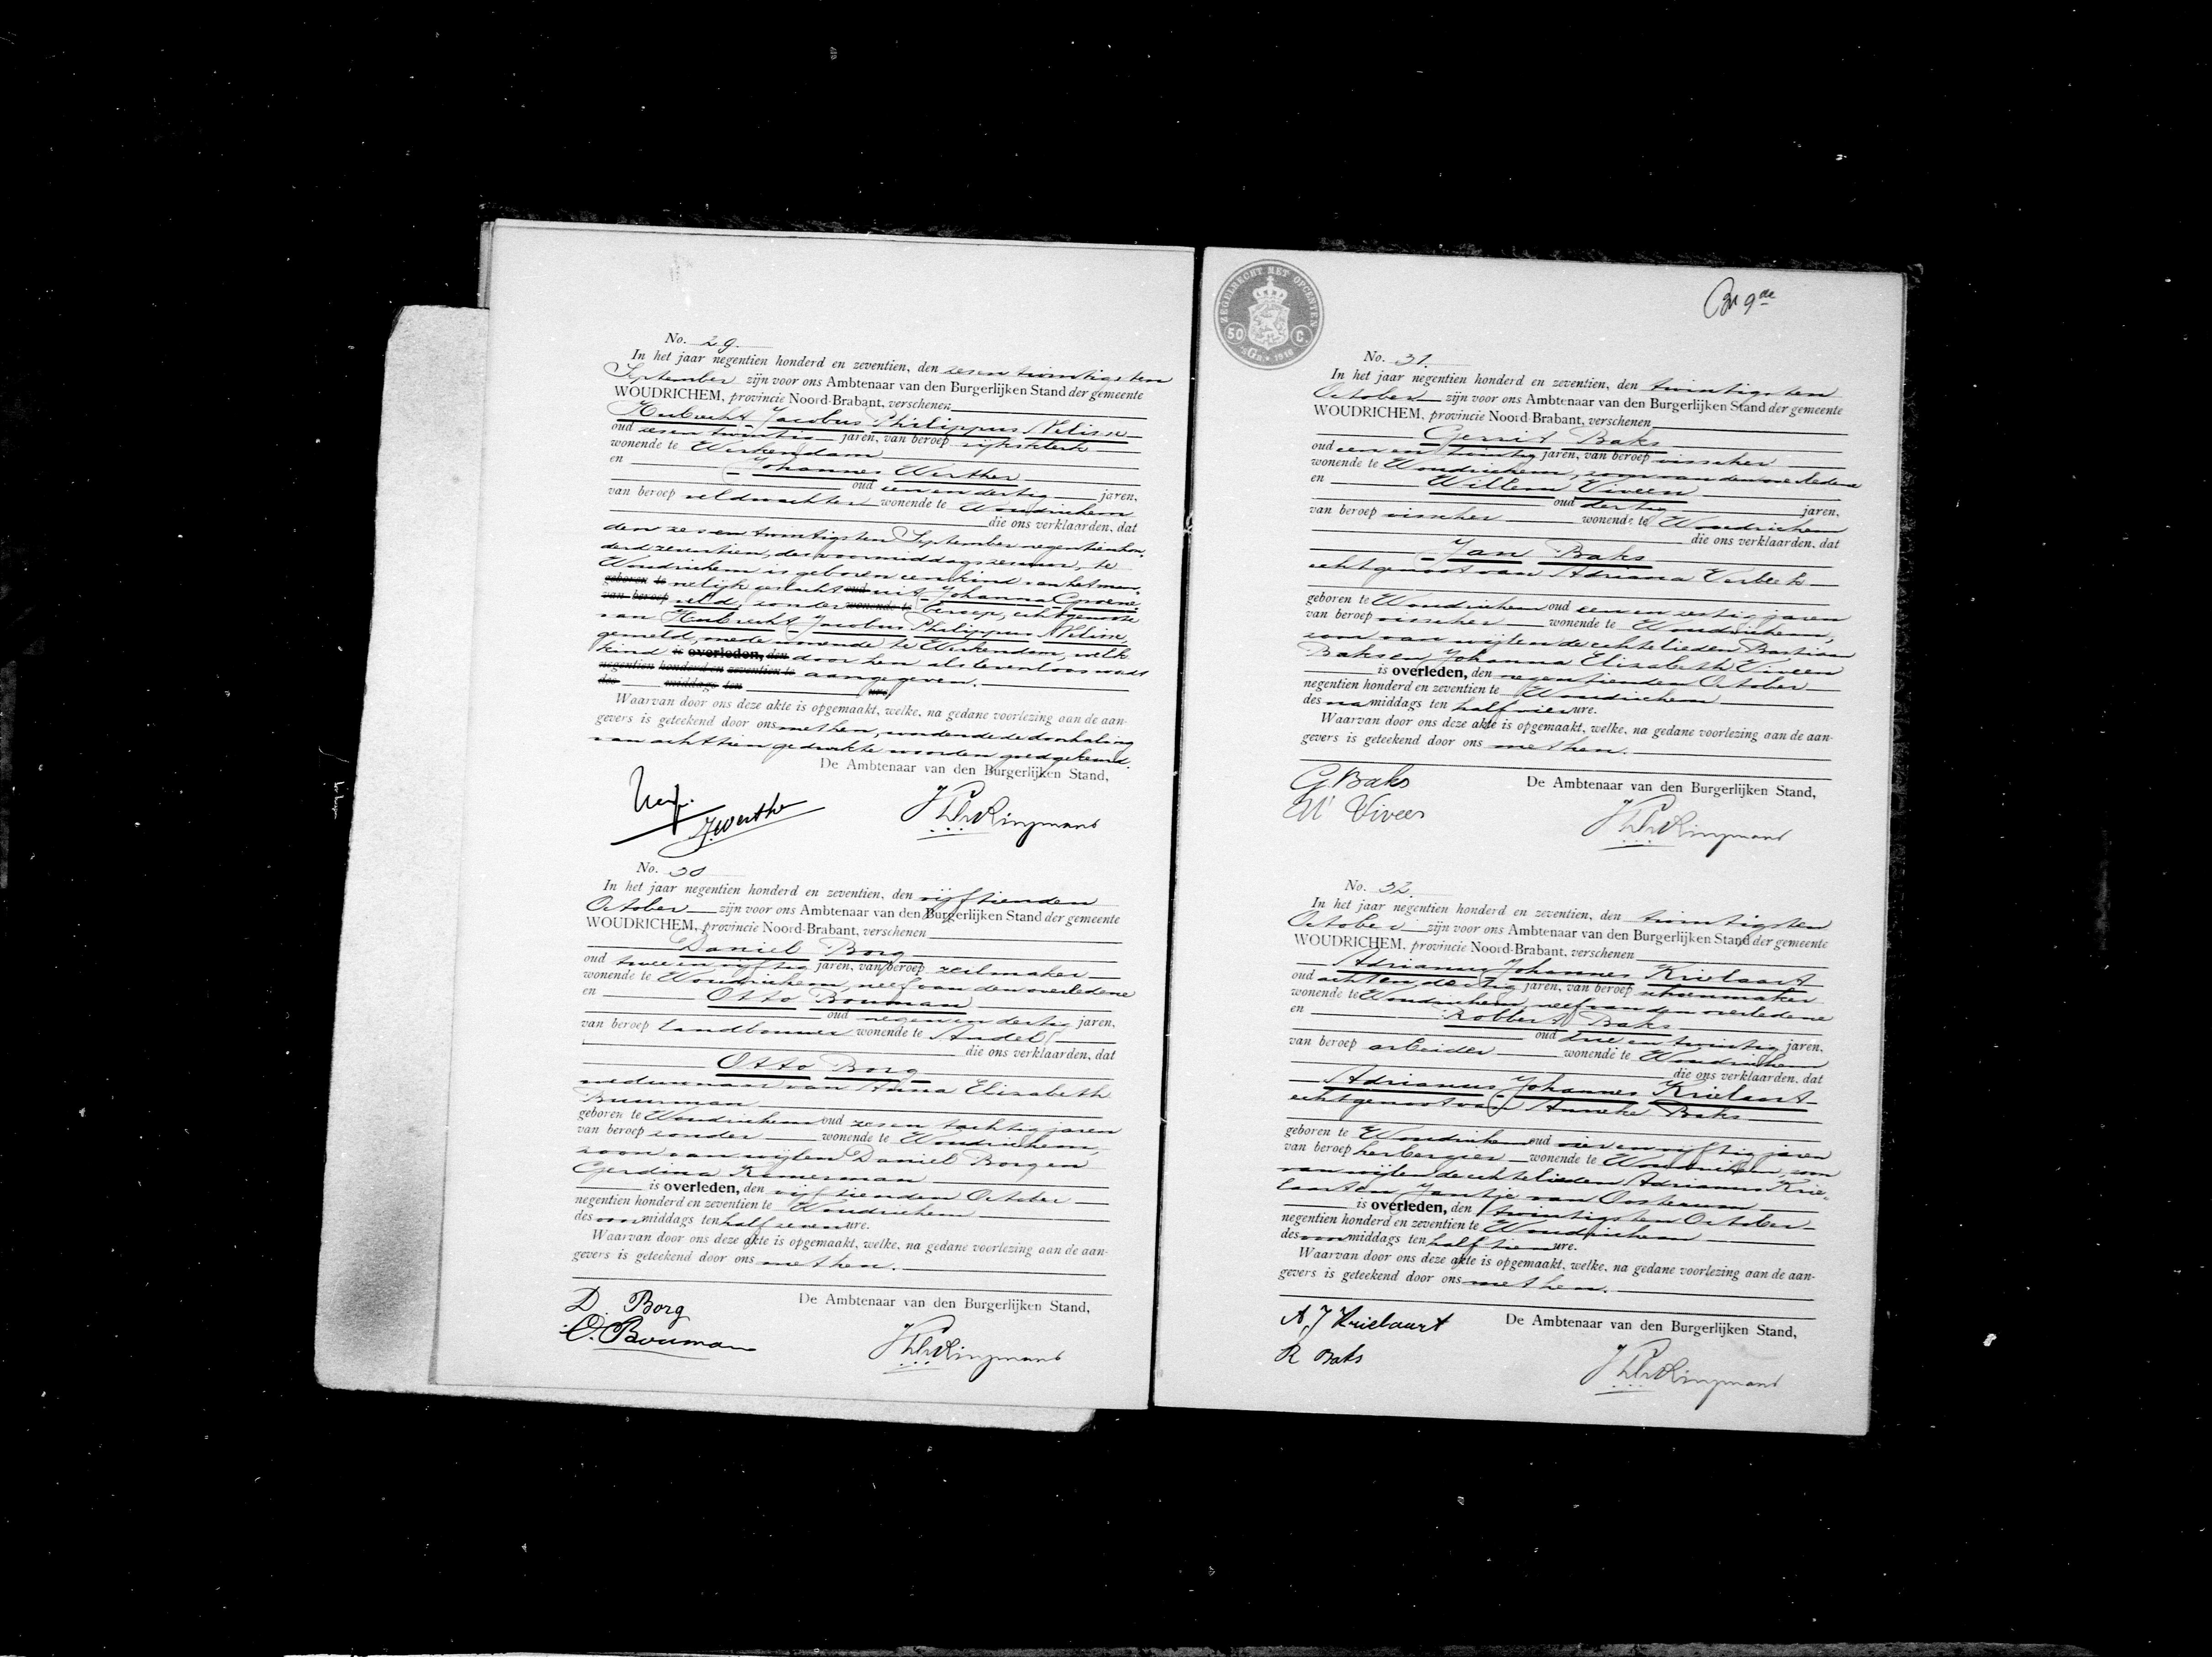 No. 29.
In het jaar negentien honderd en zeventien, den zesen twintigsten
September zijn voor ons Ambtenaar van den Burgerlijken Stand der gemeente
WOUDRICHEM, provincie Noord-Brabant, verschenen
Hubrecht Jacobus Philippus Nelisse
oud zesen twintig jaren, van beroep rijksklerk
wonende te Werkendam
en Johannes Werther
oud een en dertig jaren,
van beroep veldwachter wonende te Woudrichem
die ons verklaarden, dat
den zesen twintigsten September negentienhon-
derd zeventien, des voormiddags zes ure, te
Woudrichem is geboren een kind van het man-
geboren te nelijk geslacht oud uit Johanna Groene
van beroep veld, zonder wonende te beroep, echtgenoote
van Hubrecht Jacobus Philippus Nelisse,
gemeld, mede wonende te Werkendam, welk
kind is overleden, den door hen als levenloos werd
negentien honderd en zeventien te aangegeven.
des middags ten ure
Waarvan door ons deze akte is opgemaakt, welke, na gedane voorlezing aan de aan-
gevers is geteekend door ons met hen, wordende de doorhaling
van achttien gedrukte woorden goedgekeurd.
De Ambtenaar van den Burgerlijken Stand,
J. Werther
No. 30
In het jaar negentien honderd en zeventien, den vijftienden
October zijn voor ons Ambtenaar van den Burgerlijken Stand der gemeente
WOUDRICHEM, provincie Noord-Brabant, verschenen
Daniel Borg
oud twee en vijftig jaren, van beroep zeilmaker
wonende te Woudrichem, neef van den overledene
en Otto Bouman
oud negen en dertig jaren,
van beroep landbouwer wonende te Andel
die ons verklaarden, dat
Otto Borg
weduwnaar van Anna Elizabeth
Buurman
geboren te Woudrichem oud zes en tachtig jaren
van beroep zonder wonende te Woudrichem,
zoon van wijlen Daniel Borg en
Gerdina Kamerman
is overleden, den vijftienden October
negentien honderd en zeventien te Woudrichem
des voormiddags ten half zeven ure.
Waarvan door ons deze akte is opgemaakt, welke, na gedane voorlezing aan de aan-
gevers is geteekend door ons met hen.
De Ambtenaar van den Burgerlijken Stand,
D. Borg
O. Bouman
ZEGELRECHT MET OPCENTEN
50 C.
1916
9de
No. 31.
In het jaar negentien honderd en zeventien, den twintigsten
October zijn voor ons Ambtenaar van den Burgerlijken Stand der gemeente
WOUDRICHEM, provincie Noord-Brabant, verschenen
Gerrit Baks
oud een en twintig jaren, van beroep visscher
wonende te Woudrichem, zoon van den overledene
en Willem Viveen
oud dertig jaren,
van beroep visscher wonende te Woudrichem
die ons verklaarden, dat
Jan Baks
echtgenoot van Adriana Verbeek
geboren te Woudrichem oud een en zestig jaren
van beroep visscher wonende te Woudrichem,
zoon van wijlen de echtelieden Bastiaan
Baks en Johanna Elizabeth Viveen
is overleden, den negentienden October
negentien honderd en zeventien te Woudrichem
des namiddags ten half vier ure.
Waarvan door ons deze akte is opgemaakt, welke, na gedane voorlezing aan de aan-
gevers is geteekend door ons met hen.
De Ambtenaar van den Burgerlijken Stand,
G. Baks
W Viveen
No. 32.
In het jaar negentien honderd en zeventien, den twintigsten
October zijn voor ons Ambtenaar van den Burgerlijken Stand der gemeente
WOUDRICHEM, provincie Noord-Brabant, verschenen
Adrianus Johannes Krielaart
oud acht en dertig jaren, van beroep schoenmaker
wonende te Woudrichem, neef van den overledene
en Robbert Baks
oud drie en twintig jaren,
van beroep arbeider wonende te Woudrichem
die ons verklaarden, dat
Adrianus Johannes Krielaart
echtgenoot van Anneke Baks
geboren te Woudrichem oud vier en vijftig jaren
van beroep herbergier wonende te Woudrichem, zoon
van wijlen de echtelieden Adrianus Krie-
laart en Jantje van Oosterum
is overleden, den twintigsten October
negentien honderd en zeventien te Woudrichem
des voormiddags ten half tien ure.
Waarvan door ons deze akte is opgemaakt, welke, na gedane voorlezing aan de aan-
gevers is geteekend door ons met hen.
De Ambtenaar van den Burgerlijken Stand,
A, J Krielaart
R Baks